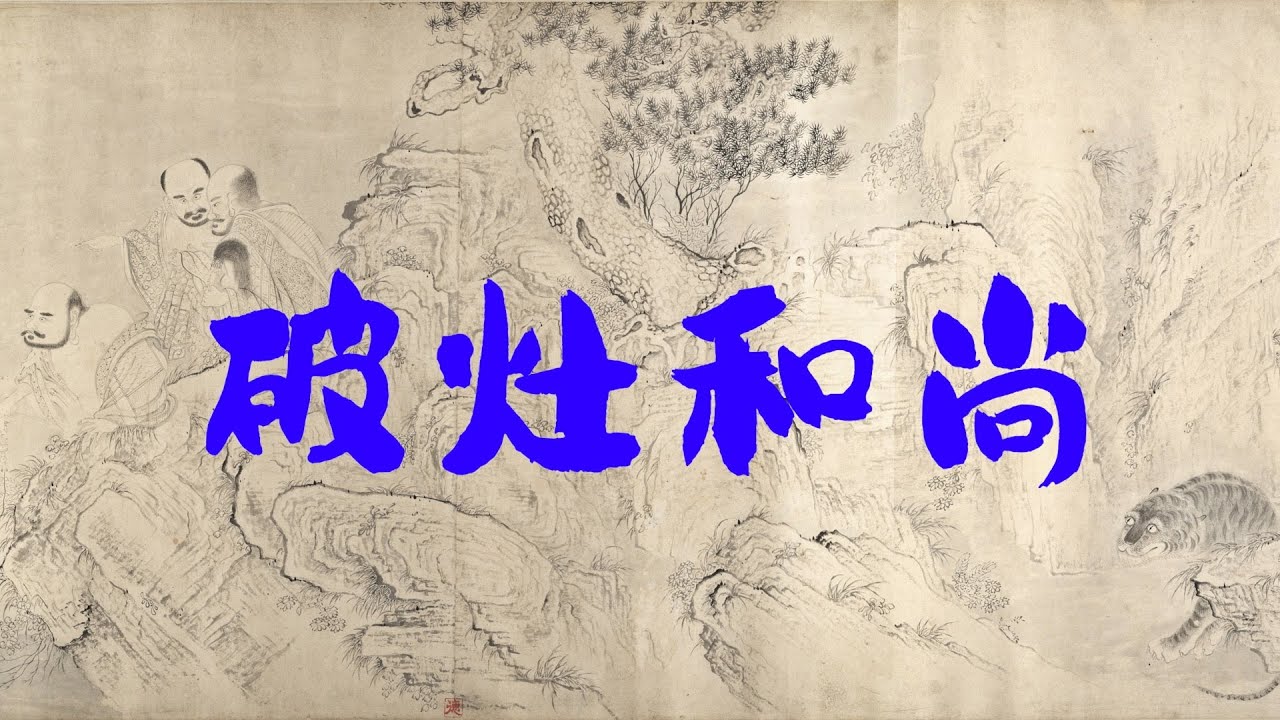 破灶和尚